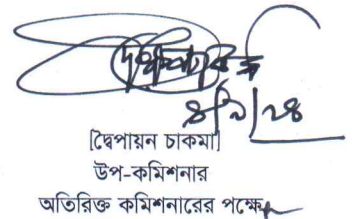 ৪/৯/২৪
[দ্বৈপায়ন চাকমা]
উপ-কমিশনার
অতিরিক্ত কমিশনারের পক্ষে